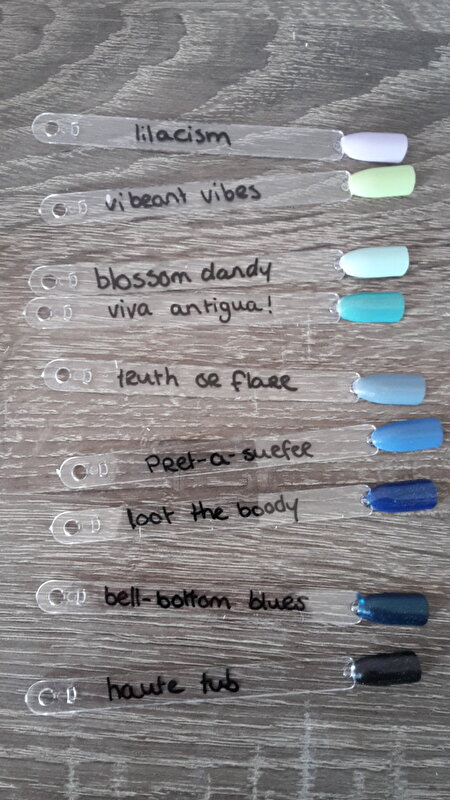 lilacism
vibrant vibes
blossom dandy
viva antigua!
truth or flare
pret-a-surfer
loot the boody
bell-bottom blues
haute tub